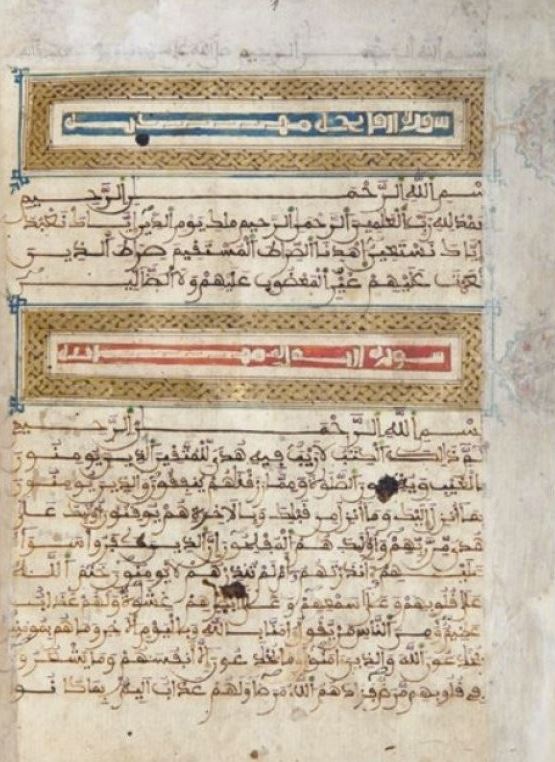 بسم الله الرحمن الرحيم
سورة
بسم الله الرحمن الرحيم
الحمد لله رب العلمين الرحمن الرحيم ملك يوم الدين اياك نعبد
واياك نستعين اهدنا الصراط المستقيم صراط الذين
انعمت عليهم غير المغضوب عليهم ولا الضالين
سورة
بسم الله الرحمن الرحيم
الم ذلك الكتب لا ريب فيه هدى للمتقين الذين يومنون
بالغيب ويقيمون الصلوة ومما رزقنهم ينفقون والذين يومنون
بما انزل اليك وما انزل من قبلك وبالاخرة هم يوقنون اوليك على
هدى من ربهم واوليك هم المفلحون ان الذين كفروا سوا
عليهم انذرتهم ام لم تنذرهم لا يومنون ختم الله
على قلوبهم وعلى سمعهم وعلى ابصرهم غشوة ولهم عذاب
عظيم ومن الناس من يقول امنا بالله وباليوم الاخر وما هم بمومنين
يخدعون الله والذين امنوا وما يخدعون الا انفسهم وما يشعرون
في قلوبهم مرض فزادهم الله مرضا ولهم عذاب اليم بما كانوا